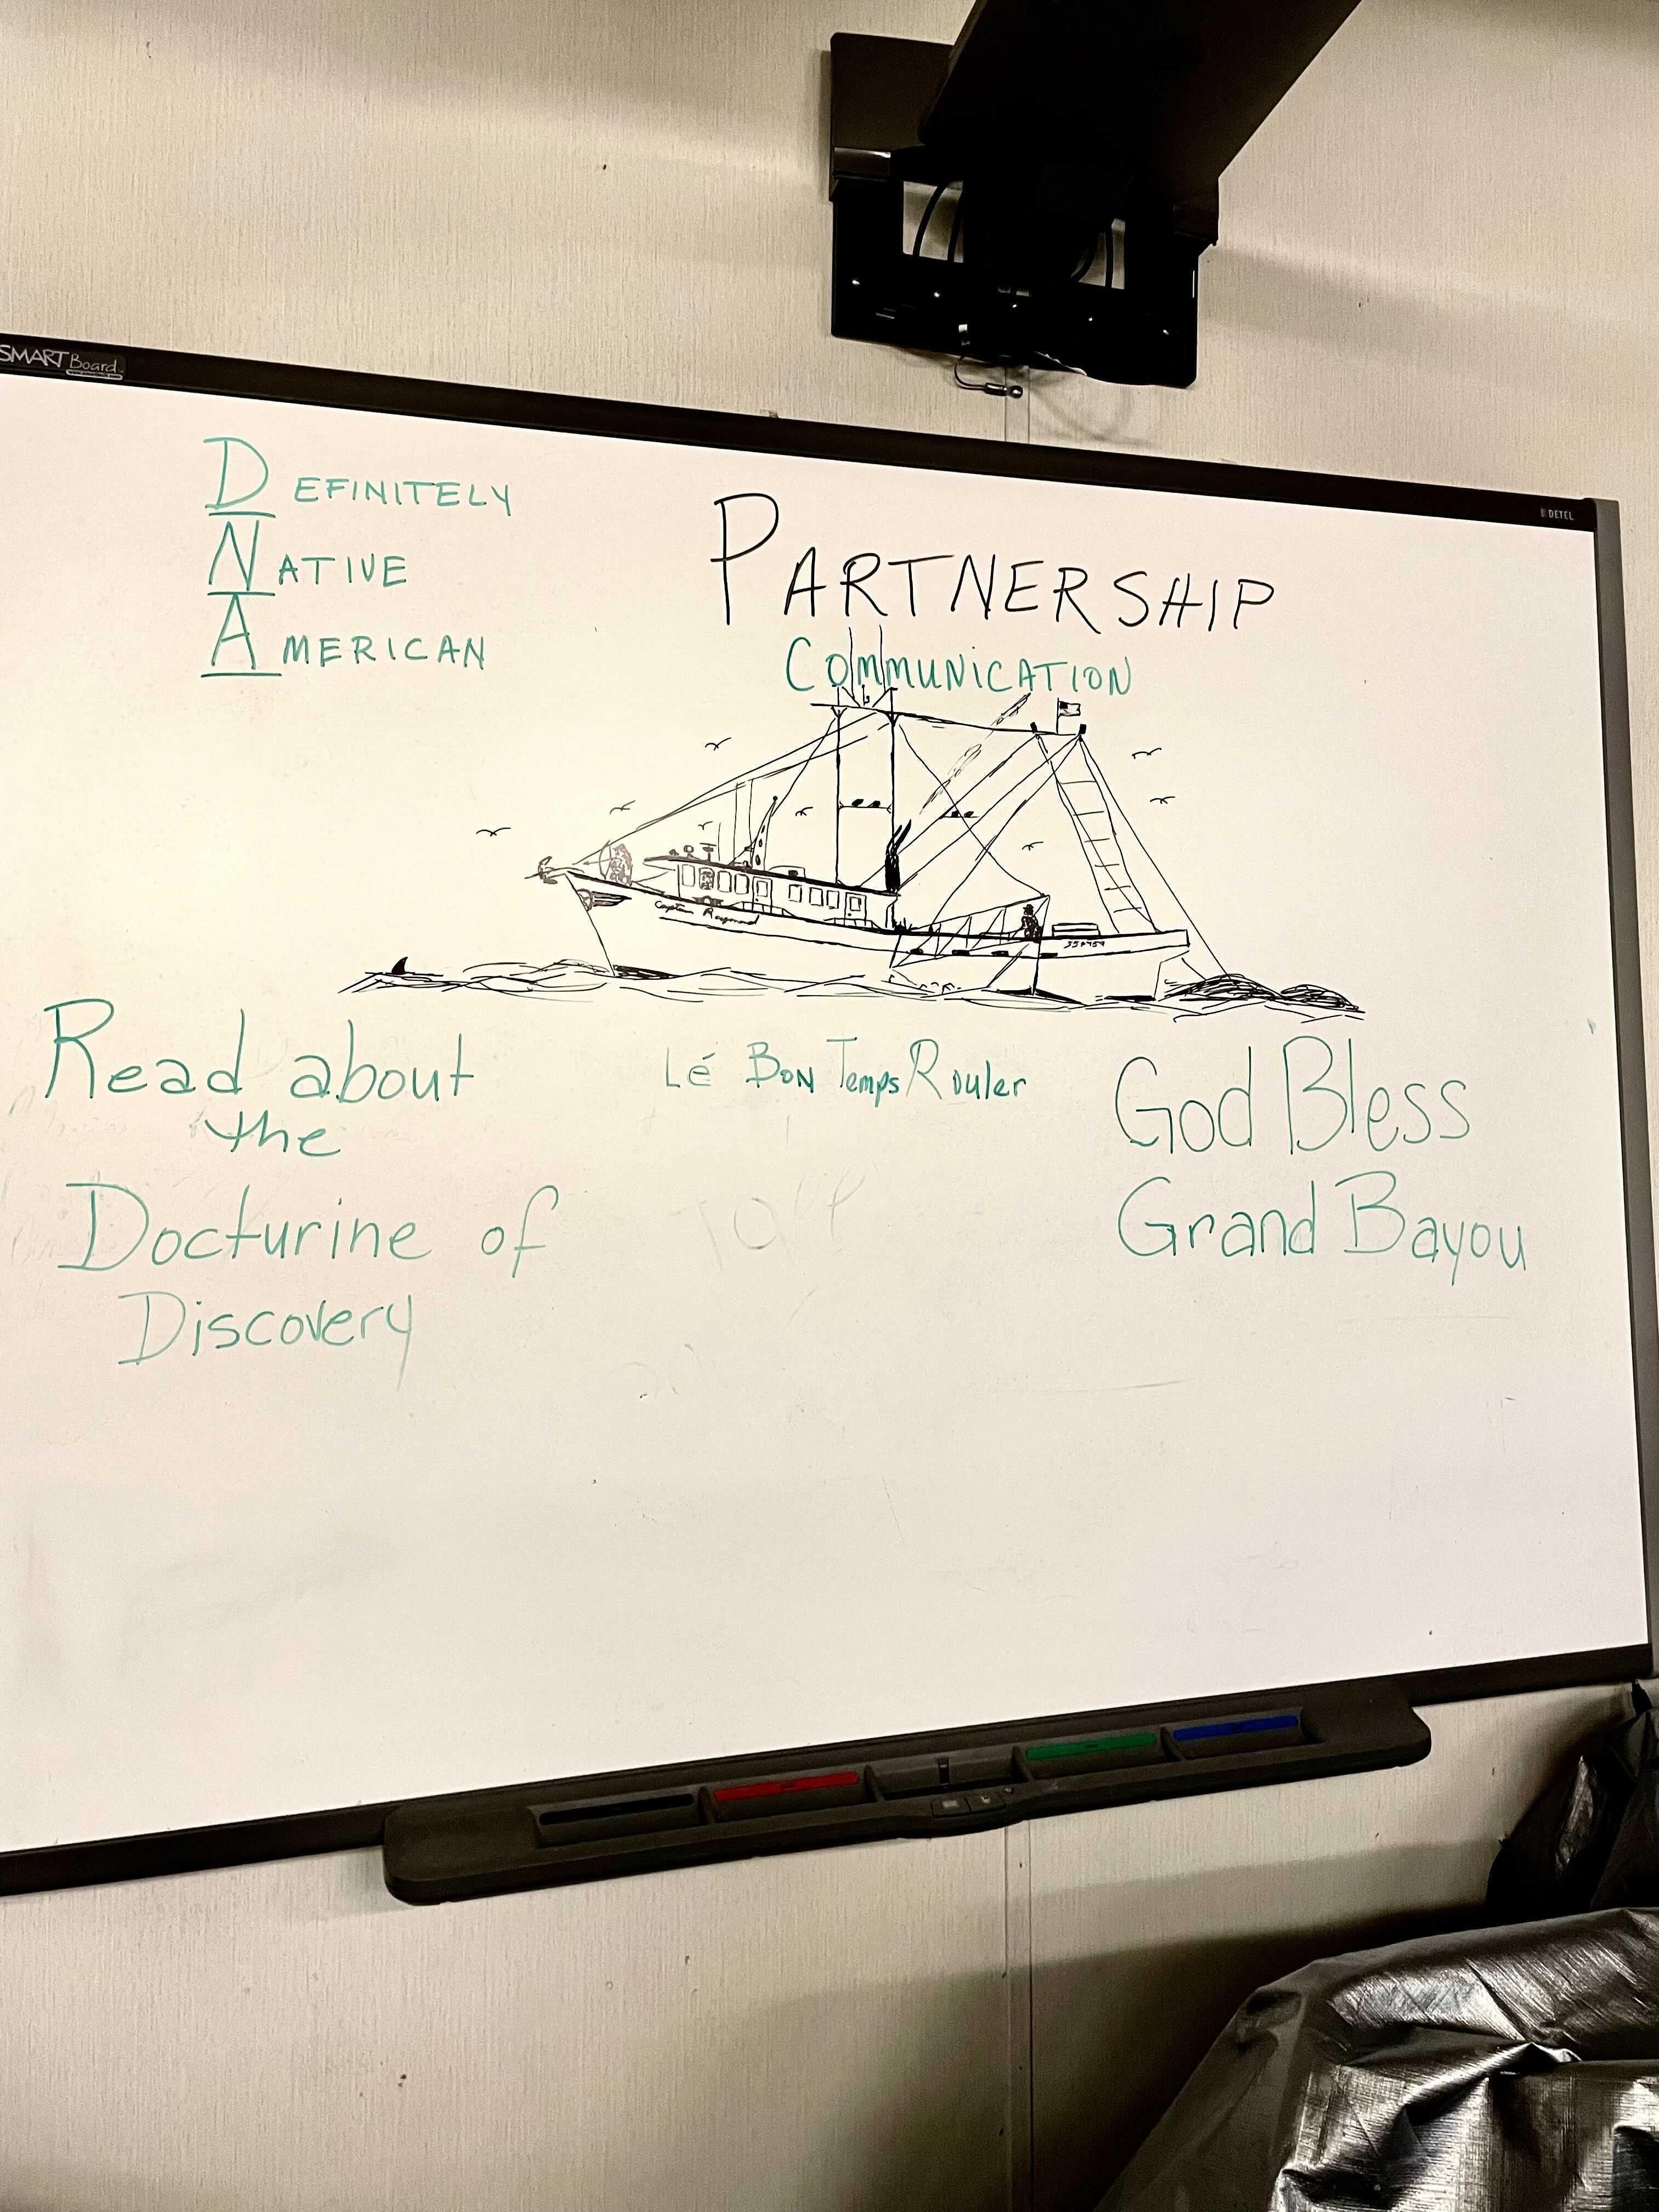 SMART Board
DETEL
DEFINITELY
NATIVE
AMERICAN
PARTNERSHIP
COMMUNICATION
Captain Raymond
Read about
the
Docturine of
Discovery
Lé Bon Temps Rouler
God Bless
Grand Bayou